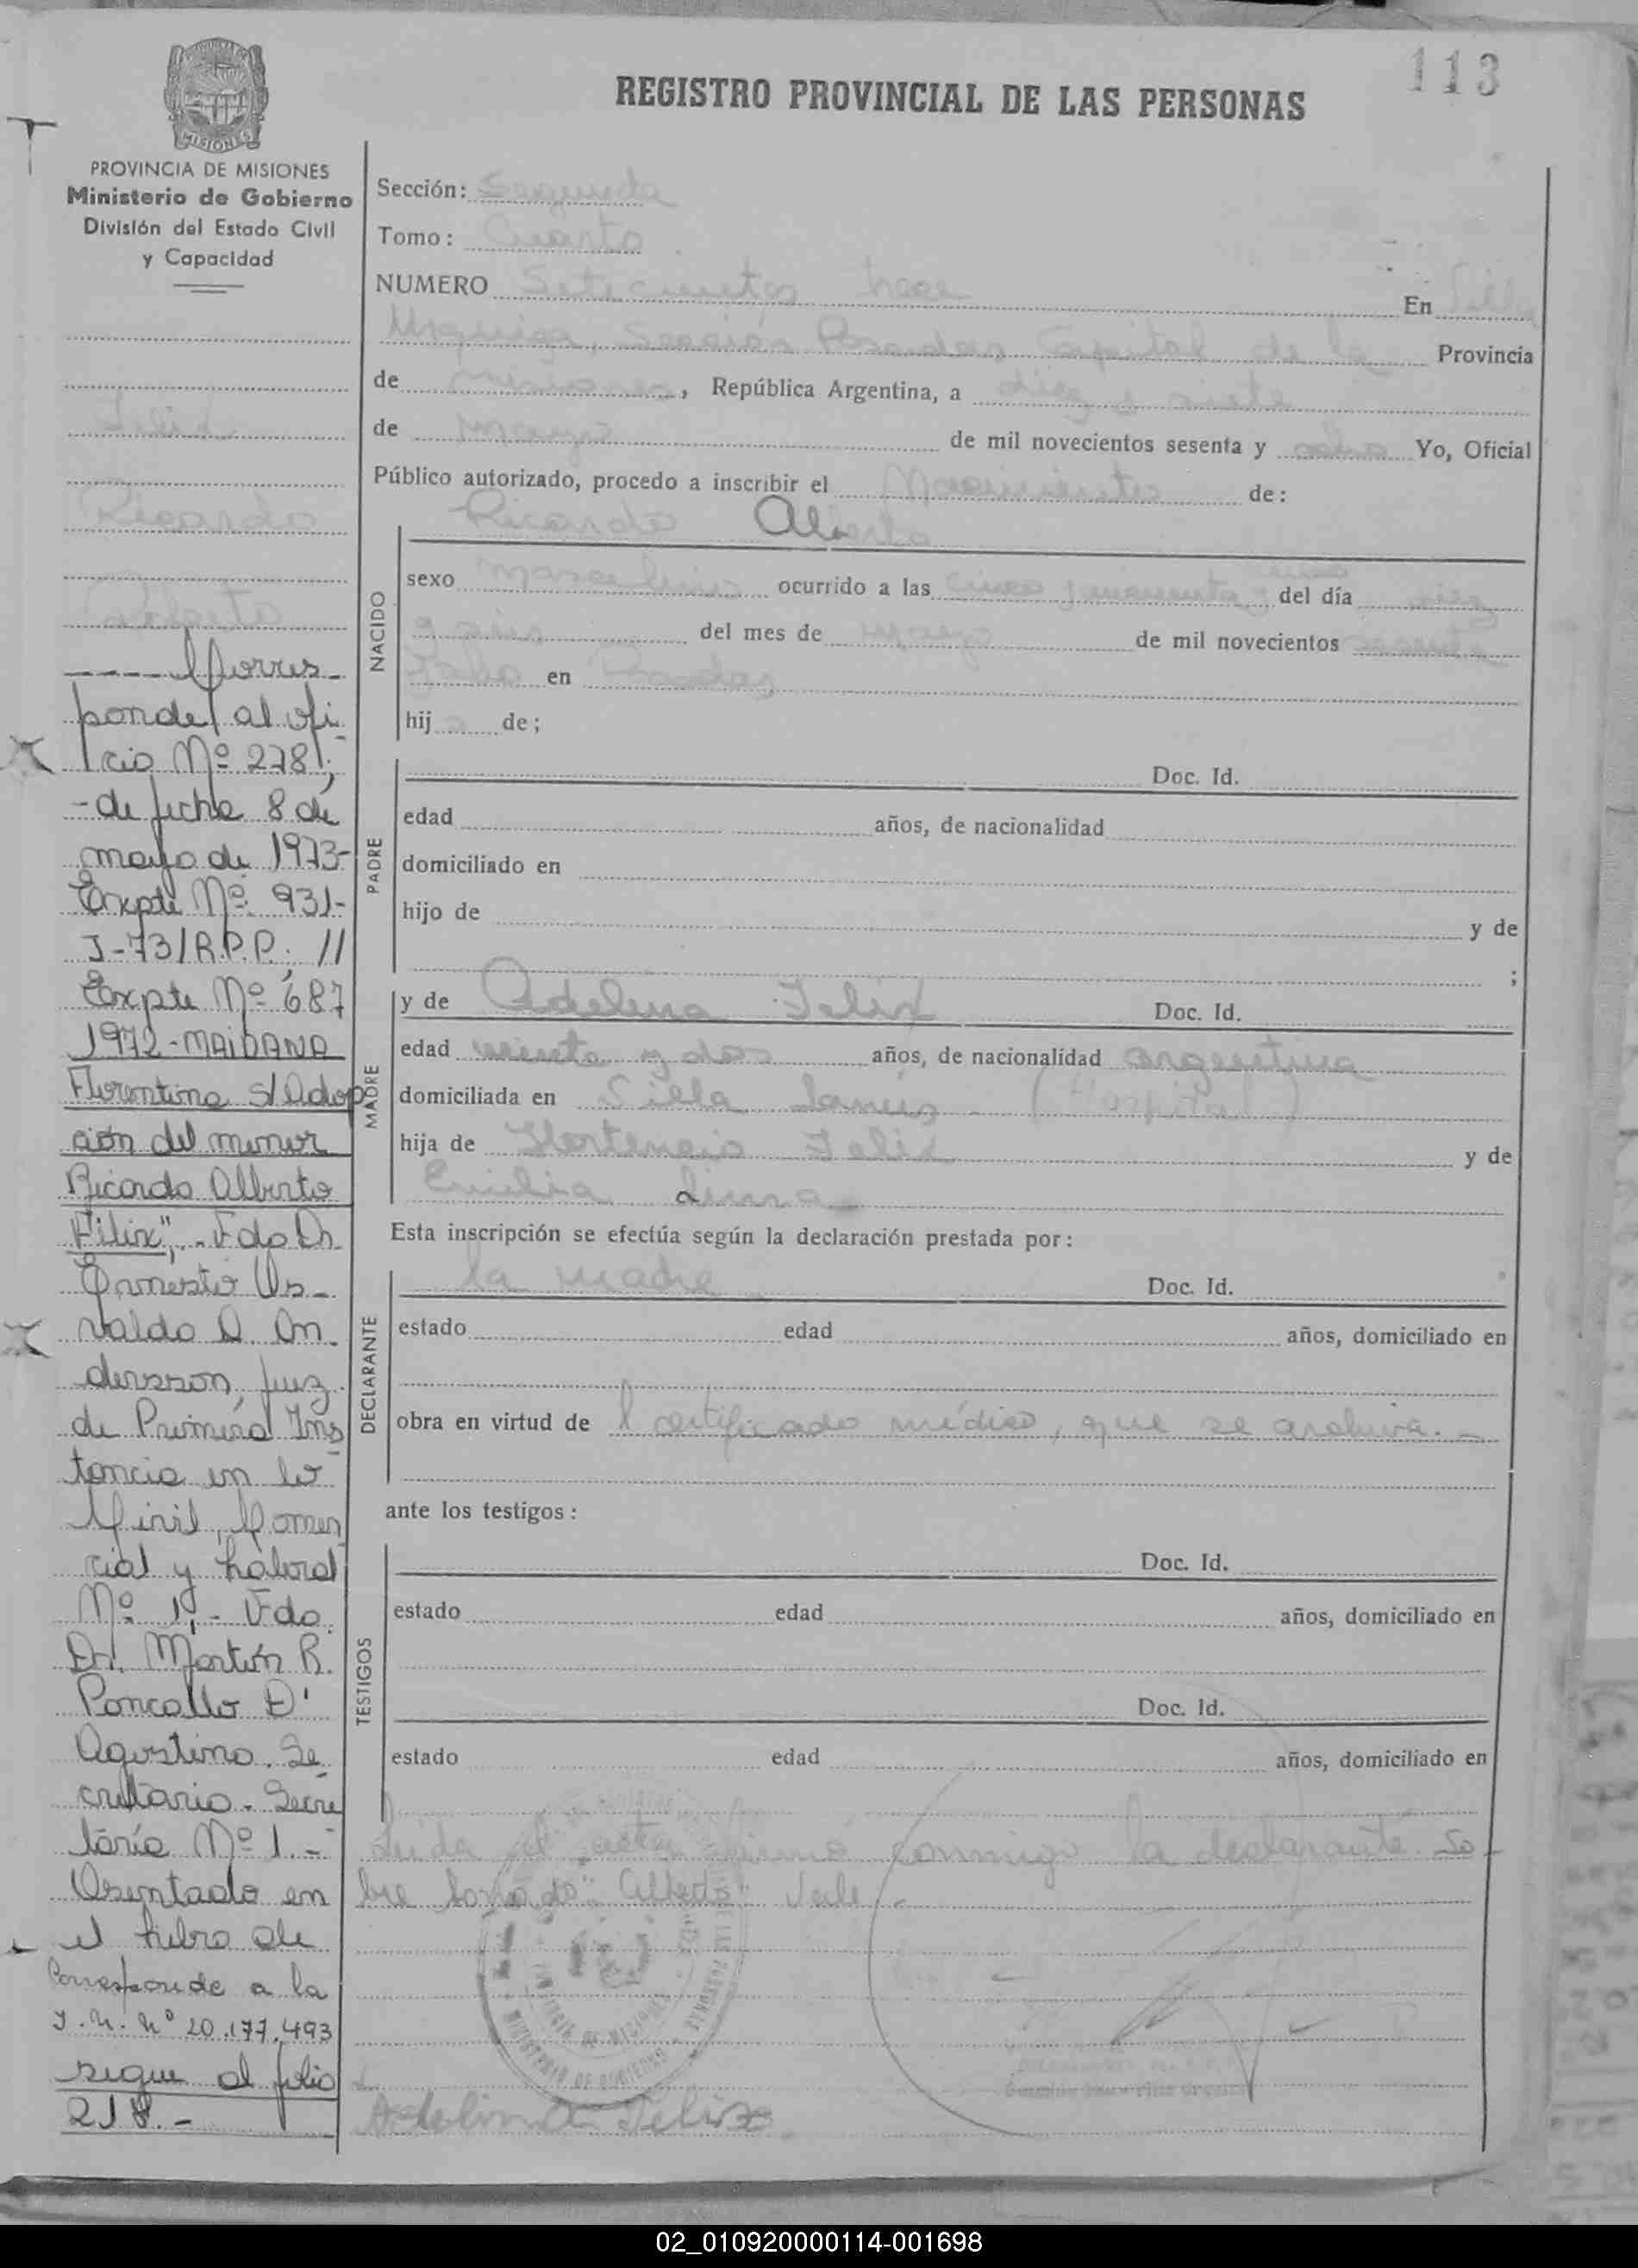 113
REGISTRO PROVINCIAL DE LAS PERSONAS
MISIONES
PROVINCIA DE MISIONES
Ministerio de Gobierno
División del Estado Civil
y Capacidad
Felix
Ricardo
Alberto
---- Corres-
ponde al ofi
cio Nº 278;
-de fecha 8 de
mayo de 1973-
Expte Nº 931-
J-73/R.P.P. //
Expte Nº 687
1972-MAIDANA
Florentina s/Adop
ción del menor
Ricardo Alberto
Felix".-Fdo Dr.
Ernesto Os-
valdo A. An
dersson, juez
de Primera Ins
tancia en lo
Civil, Comer
cial y Laboral
Nº 1,- Fdo.
Dr. Martín R.
Poncallo D'
Agostino. Se
cretario. Secre
taría Nº 1.-
Asentado en
el Libro de
Corresponde a la
I.N. Nº 20.177.493
sigue al folio
218.-
Sección: Segunda
Tomo: Cuarto
NUMERO Setecientos trece En Villa
Urquiza, Sección Posadas Capital de la Provincia
de Misiones, República Argentina, a diez y siete
de mayo de mil novecientos sesenta y ocho Yo, Oficial
Público autorizado, procedo a inscribir el Nacimiento de:
Ricardo Alberto
NACIDO
sexo masculino ocurrido a las cinco y cincuenta y una del día diez
y seis del mes de mayo de mil novecientos sesenta
y ocho en Posadas
hij o de;
PADRE
Doc. Id.
edad años, de nacionalidad
domiciliado en
hijo de y de
;
MADRE
y de Adelina Felix Doc. Id.
edad veinte y dos años, de nacionalidad argentina
domiciliada en Villa Lanús (Hospital)
hija de Hortencio Felix y de
Emilia Lima
Esta inscripción se efectúa según la declaración prestada por:
DECLARANTE
la madre Doc. Id.
estado edad años, domiciliado en
obra en virtud de l certificado médico, que se archiva.-
ante los testigos:
TESTIGOS
Doc. Id.
estado edad años, domiciliado en
Doc. Id.
estado edad años, domiciliado en
Leida el acta, firmó conmigo la declarante. So-
bre borrado: "Alberto" Vale.-
Adelina Felix
02_010920000114-001698